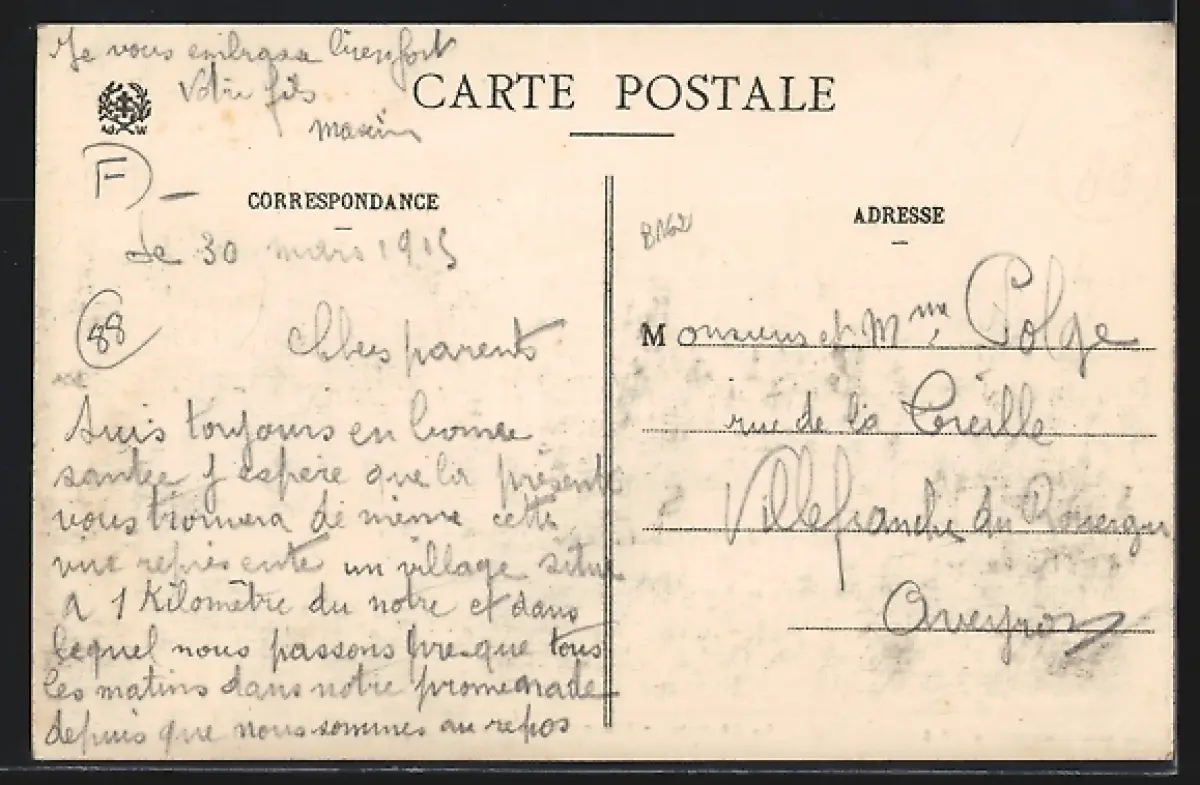 Je vous embrasse bien fort
Votre fils
maxim
CARTE POSTALE
Ad W
F
CORRESPONDANCE
ADRESSE
8162
Le 30 mars 1915
88
Chers parents
Suis toujours en bonne
santée j espère que la présente
vous trouvera de même cette
vue représente un village situé
a 1 Kilomètre du notre et dans
lequel nous passons presque tous
les matins dans notre promenade
depuis que nous sommes au repos
Monsieur et Mme Polge
rue de la Treille
Villefranche du Rouergue
Aveyron